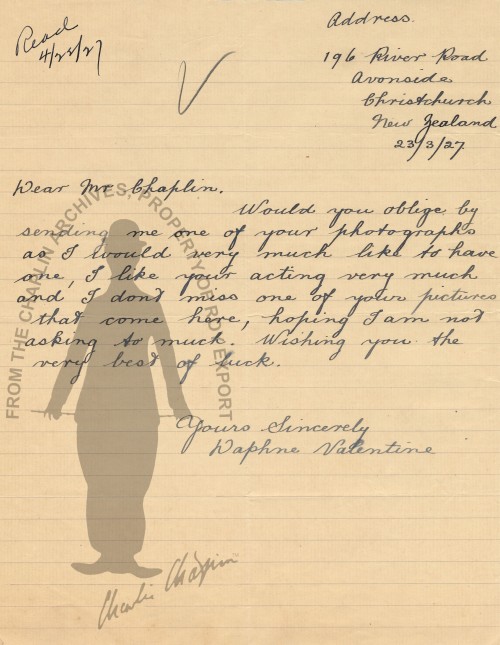 Read
4/23/27
Address.
196 River Road
Avonside
Christchurch
New Zealand
23/3/27.
Dear Mr Chaplin.
Would you oblige by
sending me one of your photographs
as I would very much like to have
one, I like your acting very much
and I dont miss one of your pictures
that come here, hoping I am not
asking to much. Wishing you the
very best of luck.
Yours Sincerely
Daphne Valentine
FROM THE CHAPLIN ARCHIVES, PROPERTY OF ROY EXPORT
Charlie Chaplin